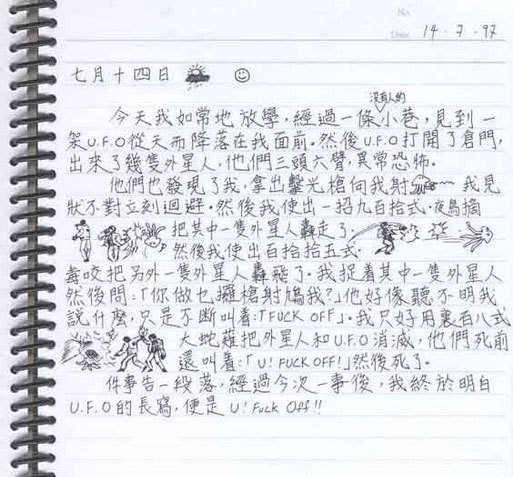 No
Date 14 - 7 - 97
七月十四日
沒有人的
今天我如常地放學,經過一條小巷,見到一
架U.F.O從天而降落在我面前.然後U.F.O打開了倉門,
出來了幾隻外星人,他們三頭六臂,異常恐怖.
他們也發現了我,拿出擊光槍向我射 我見
狀不對立刻迴避.然後我使出一招九百拾式.夜鳥摘
把其中一隻外星人轟走了.
然後我使出百拾拾五式.
毒咬把另外一隻外星人轟飛了.我捉着其中一隻外星人
然後問:「你做乜攞槍射鳩我?」他好像聽不明我
說什麼,只是不斷叫着:「FUCK OFF」.我只好用裏百八式
大蛇薙把外星人和U.F.O消滅,他們死前
還叫着:「U! FUCK OFF!」然後死了.
件事告一段落,經過今次一事後,我終於明白
U.F.O的長寫,便是U! Fuck Off!!